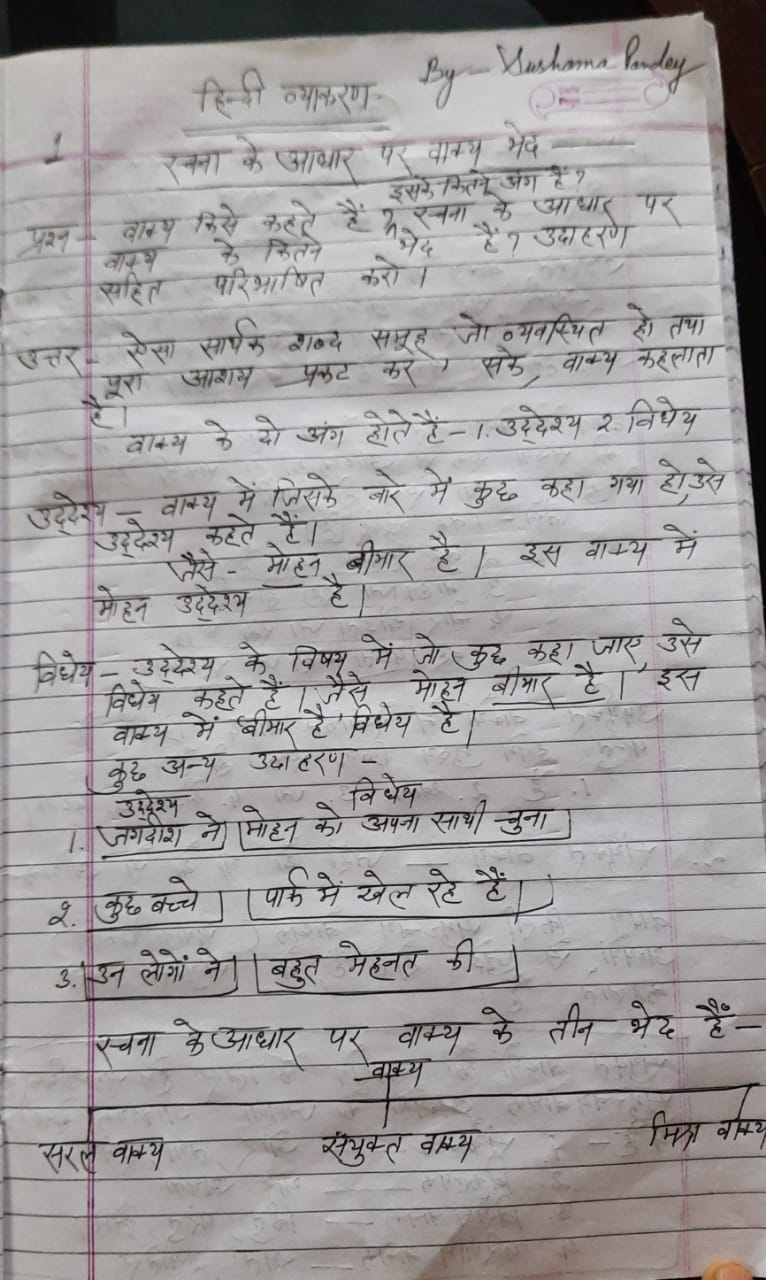 By - Sushama Pandey
हिन्दी व्याकरण -
1
रचना के आधार पर वाक्य भेद
इसके कितने अंग हैं?
प्रश्न - वाक्य किसे कहते हैं? रचना के आधार पर
वाक्य के कितने भेद हैं? उदाहरण
सहित परिभाषित करो।
उत्तर - ऐसा सार्थक शब्द समूह, जो व्यवस्थित हो तथा
पूरा आशय प्रकट कर सके, वाक्य कहलाता
है।
वाक्य के दो अंग होते हैं - 1. उद्देश्य २. विधेय
उद्देश्य - वाक्य में जिसके बारे में कुछ कहा गया हो, उसे
उद्देश्य कहते हैं।
जैसे - मोहन बीमार है। इस वाक्य में
मोहन उद्देश्य है।
विधेय - उद्देश्य के विषय में जो कुछ कहा जाए, उसे
विधेय कहते हैं। जैसे मोहन बीमार है। इस
वाक्य में 'बीमार है' विधेय है।
कुछ अन्य उदाहरण -
उद्देश्य विधेय
1. जगदीश ने मोहन को अपना साथी चुना
२. कुछ बच्चे पार्क में खेल रहे हैं।
3. उन लोगों ने बहुत मेहनत की
रचना के आधार पर वाक्य के तीन भेद हैं -
वाक्य
सरल वाक्य संयुक्त वाक्य मिश्र वाक्य